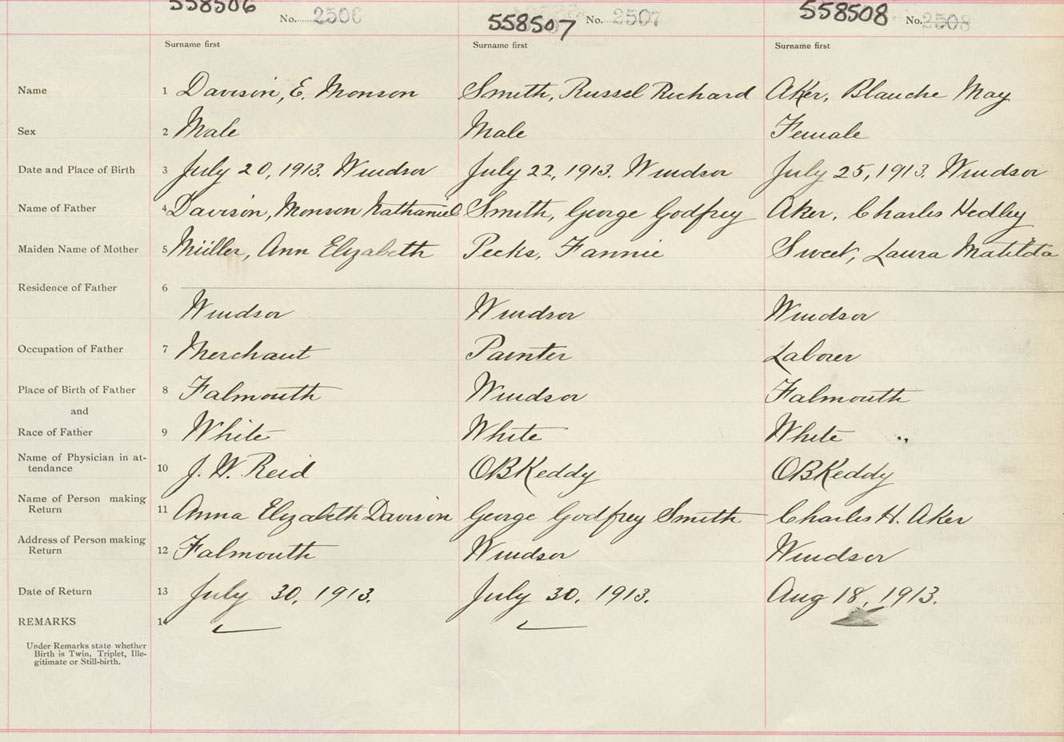 558506 No. 2506 558507 No. 2507 558508 No. 2508
Surname first Surname first Surname first
Name 1 Davison, E. Monson Smith, Russel Richard Aker, Blanche May
Sex 2 Male Male Female
Date and Place of Birth 3 July 20, 1913. Windsor July 22, 1913. Windsor July 25, 1913. Windsor
Name of Father 4 Davison, Monson Nathaniel Smith, George Godfrey Aker, Charles Hedley
Maiden Name of Mother 5 Müller, Ann Elizabeth Peeks, Fannie Sweet, Laura Matilda
Residence of Father 6
Windsor Windsor Windsor
Occupation of Father 7 Merchant Painter Laborer
Place of Birth of Father 8 Falmouth Windsor Falmouth
and
Race of Father 9 White White White
Name of Physician in at-
tendance 10 J. W. Reid OBKeddy OBKeddy
Name of Person making
Return 11 Anna Elizabeth Davison George Godfrey Smith Charles H. Aker
Address of Person making
Return 12 Falmouth Windsor Windsor
Date of Return 13 July 30, 1913. July 30, 1913. Aug 18, 1913.
REMARKS 14
Under Remarks state whether
Birth is Twin, Triplet, Ille-
gitimate or Still-birth.